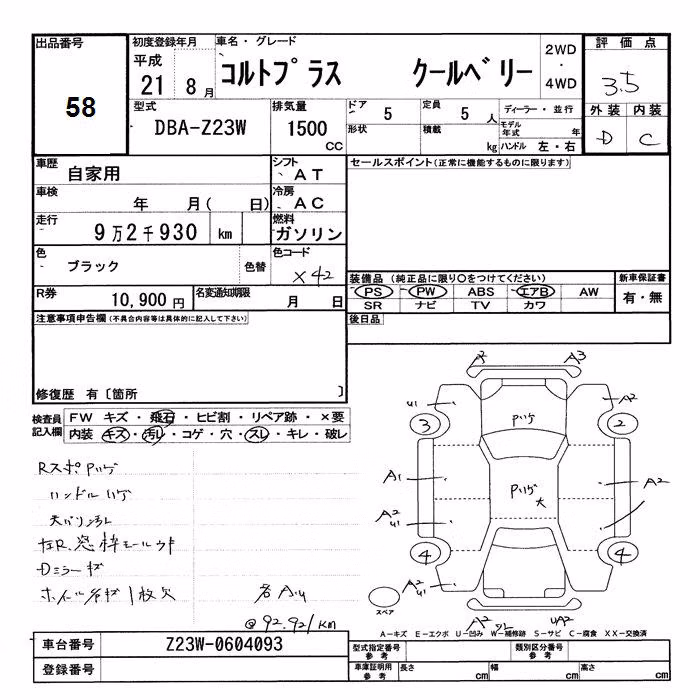 出品番号
58
初度登録年月
平成
21 8 月
車名・グレード
コルトプラス クールベリー
2WD
・
4WD
評価点
3.5
型式
DBA-Z23W
排気量
1500
CC
ドア
5
定員
5 人
ディーラー・並行
形状
積載
kg
モデル
年式 年
ハンドル 左・右
外装 内装
D C
車歴
自家用
シフト
AT
車検
年 月( 日)
冷房
AC
走行
9万2千930 km
燃料
ガソリン
色
ブラック
色替
色コード
X42
R券
10,900 円
名変通知期限
月 日
セールスポイント(正常に機能するものに限ります)
装備品 (純正品に限り○をつけてください)
PS PW ABS エアB AW
SR ナビ TV カワ
新車保証書
有・無
後日品
注意事項申告欄(不具合内容等は具体的に記入して下さい)
修復歴 有〔箇所 〕
検査員
記入欄
FW キズ・飛石・ヒビ割・リペア跡・×要
内装 キズ・汚レ・コゲ・穴・スレ・キレ・破レ
RスポPハゲ
ハンドルハゲ
Dミラーキズ
@92.921km
A2 A3
U1 A2
Pハゲ
3 2
A1
Pハゲ
大
A2
A2
U1
4 4
A2
U1
スペア
A2
UA2
A-キズ E-エクボ U-凹み W-補修跡 S-サビ C-腐食 XX-交換済
車台番号
Z23W-0604093
登録番号
型式指定番号
参考
類別区分番号
参考
車庫証明用
参考
長さ cm
幅 cm
高さ cm